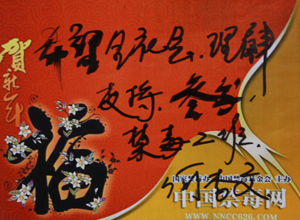 希望全社会、理解
支持、参与、
禁毒工作.
贺新年
福
中国禁毒网
WWW.NNCC626.COM